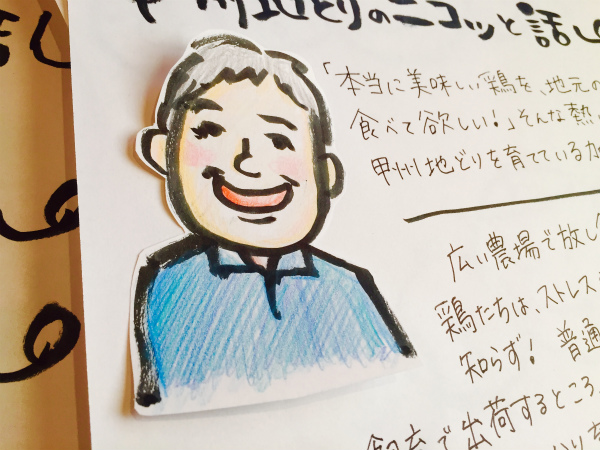 甲州地どりのニコッと話し
「本当に美味しい鶏を、地元の
食べて欲しい!」そんな熱い
甲州地どりを育てているか
広い農場で放し
鶏たちは、ストレス
知らず! 普通
飼育で出荷するところ、